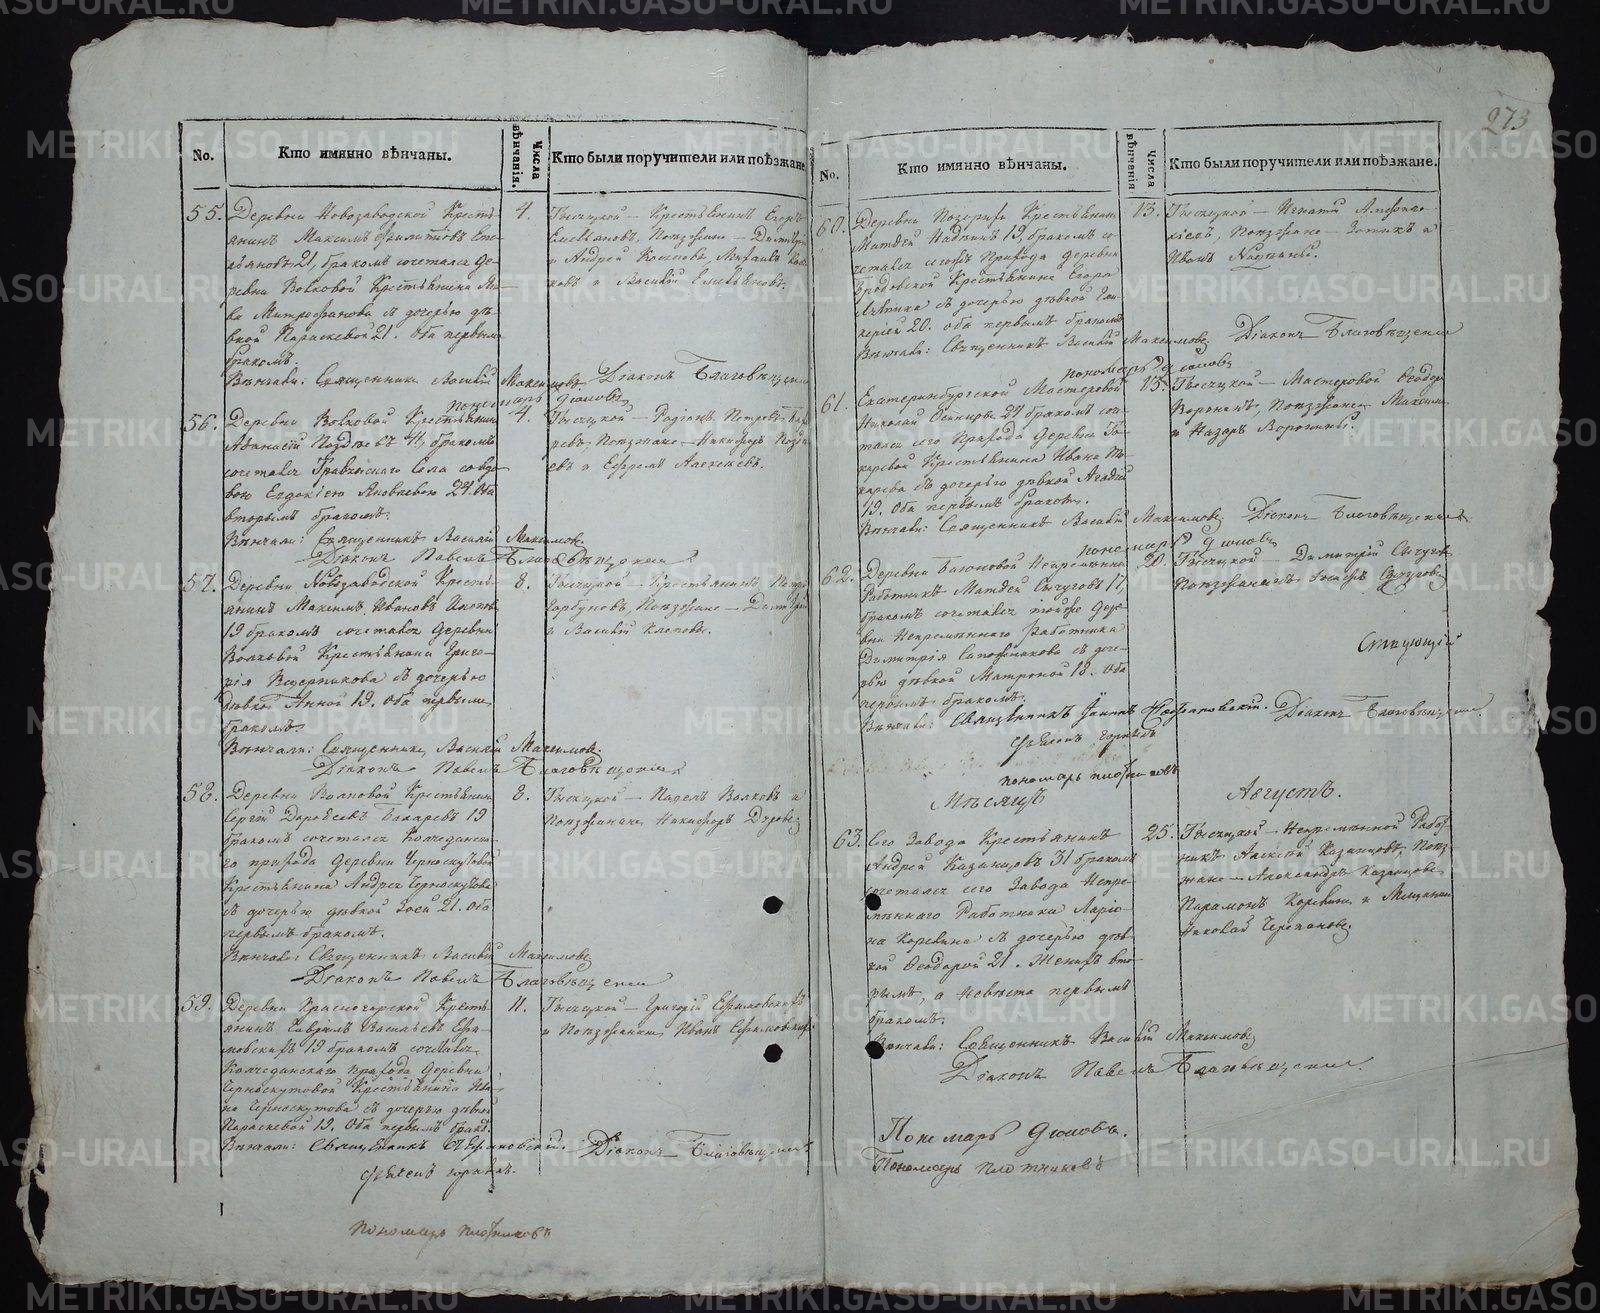 273
No.
Кто имянно вѣнчаны.
Числа вѣнчанія.
Кто были поручители или поѣзжане
55.
Деревни Новозаводской Кресть-
янинъ Максимъ
21, бракомъ сочетался де-
ревни Волковой Крестьянина
Митрофанова съ дочерью дѣ-
вкой Параскевой 21. Оба первымъ
бракомъ.
Вѣнчали: Священникъ Василій Максимовъ. Діаконъ Благовѣщенскій
пономарь
4.
Тысяцкой — Крестьянинъ Егоръ
Емельяновъ, Поѣзжане — Димитрій
и Андрей
и Василій Емельяновъ.
56.
Деревни Волковой Крестьянинъ
Афанасій 41, бракомъ
сочетался Травянскаго Села со вдо-
вою Евдокіею Яковлевою 27. Оба
вторымъ бракомъ.
Вѣнчали: Священникъ Василій Максимовъ.
Діаконъ Павелъ Благовѣщенскій
4.
Тысяцкой — Родіонъ Петровъ
Поѣзжане — Никифоръ
и Ефремъ Алексѣевъ.
57.
Деревни Новозаводской Кресть-
янинъ Максимъ Ивановъ
19 бракомъ сочетался деревни
Волковой Крестьянина Григо-
рія Ведерникова съ дочерью
дѣвкой Анной 19. Оба первымъ
бракомъ.
Вѣнчали: Священникъ Василій Максимовъ.
Діаконъ Павелъ Благовѣщенскій
8.
Тысяцкой — Крестьянинъ Петръ
Горбуновъ, Поѣзжане — Димитрій
и Василій
58.
Деревни Волковой Крестьянинъ
Сергій Дороѳеевъ 19
бракомъ сочетался Колчеданска-
го прихода деревни Черноскутовой
Крестьянина Андрея Черноскутова
съ дочерью дѣвкой Зосей 21. оба
первымъ бракомъ.
Вѣнчали: Священникъ Василій Максимовъ
Діаконъ Павелъ Благовѣщенскій
8.
Тысяцкой — Павелъ Волковъ и
Поѣзжанинъ Никифоръ
59.
Деревни Красногорской Кресть-
янинъ Гаврилъ Васильевъ Ефи-
мовскихъ 19 бракомъ сочетался
Колчеданскаго прихода деревни
Черноскутовой Крестьянина Ива-
на Черноскутова съ дочерью дѣвкой
Параскевой 19. Оба первымъ бракомъ.
Вѣнчали: Священникъ Діаконъ Благовѣщенскій
11.
Тысяцкой — Григорій Ефимовскихъ
и Поѣзжанинъ Иванъ Ефимовскихъ
пономарь Плотниковъ
No.
Кто имянно вѣнчаны.
Числа вѣнчанія
Кто были поручители или поѣзжане.
60.
Деревни Крестьянинъ
Матвей 19, бракомъ со-
четался сегожъ Прихода деревни
Бродовской Крестьянина Егора
съ дочерью дѣвкой Гли-
керіей 20. оба первымъ бракомъ
Вѣнчали: Священникъ Василій Максимовъ Діаконъ Благовѣщенскій
пономарь
13.
Тысяцкой — Игнатій
Поѣзжане — и
Иванъ
61.
Екатеринбургской Мастеровой
Николай 27 бракомъ соче-
тался сего Прихода деревни То-
каревой Крестьянина Ивана То-
карева съ дочерью дѣвкой
19. Оба первымъ бракомъ.
Вѣнчали: Священникъ Василій Максимовъ Діаконъ Благовѣщенскій
пономарь
15.
Тысяцкой — Мастеровой Ѳеодоръ
Воронинъ, Поѣзжане Максимъ
и Назаръ Воронины.
62.
Деревни Баюновой Непремѣнный
Работникъ Матвей Сычуговъ 17,
бракомъ сочетался тойже дере-
вни Непремѣннаго Работника
Димитрія Сапожникова съ доче-
рью дѣвкой Матроной 18. оба
первымъ бракомъ.
Вѣнчали: Священникъ Діаконъ Благовѣщенскій
пономарь Плотниковъ
20.
Тысяцкой — Димитрій Сычуговъ
Поѣзжанинъ Сычуговъ
Мѣсяцъ Августъ.
63.
Сего Завода Крестьянинъ
Андрей Казанцовъ 31 бракомъ
сочетался сего Завода Непре-
мѣннаго Работника Ларіо-
на Коревина съ дочерью дѣв-
кой Ѳеодорой 21. Женихъ вто-
рымъ, а Невѣста первымъ
бракомъ.
Вѣнчали: Священникъ Василій Максимовъ
Діаконъ Павелъ Благовѣщенскій.
25.
Тысяцкой — Непремѣнной Работ-
никъ Алексѣй Казанцовъ, Поѣз-
жане — Александръ Казанцовъ
Парамонъ Коревинъ и Мещанинъ
Николай Черепановъ
Пономарь
Пономарь Плотниковъ
METRIKI.GASO-URAL.RU